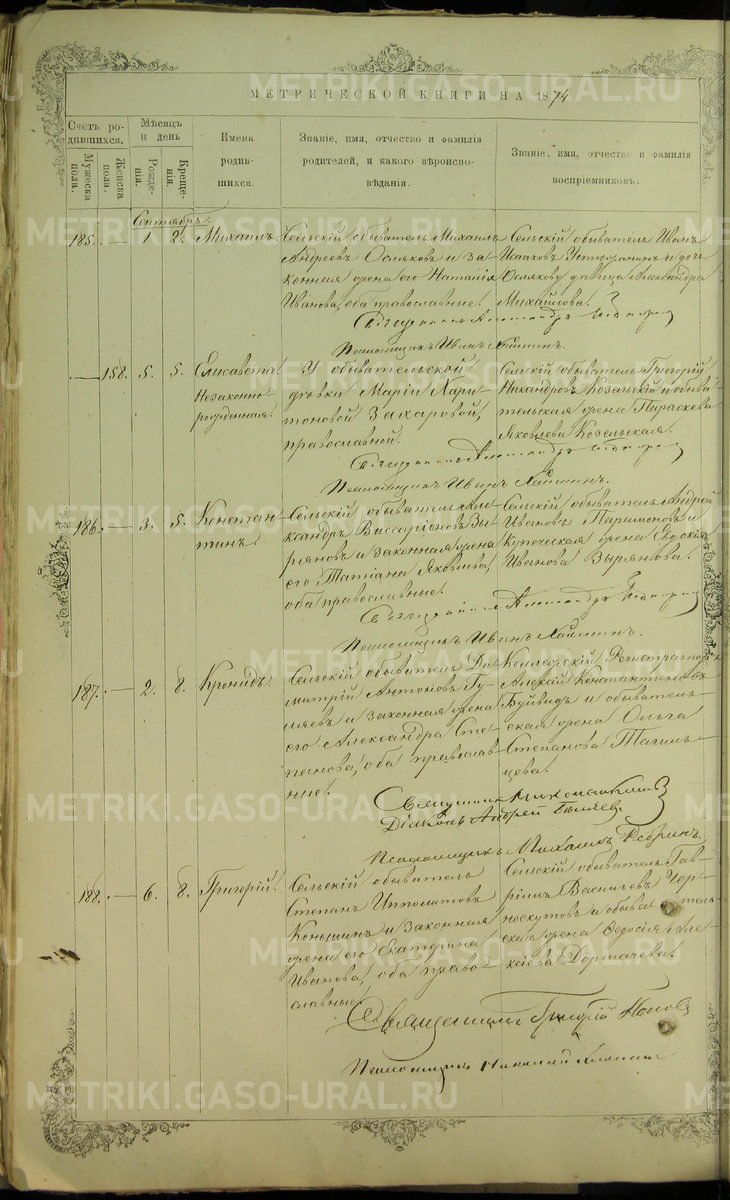 МЕТРИЧЕСКОЙ КНИГИ НА 1874
Счетъ родившихся.
Мужеска пола.
Женска пола.
Мѣсяцъ и день
Рожденія.
Крещенія.
Имена родившихся.
Званіе, имя, отчество и фамилія родителей, и какого вѣроисповѣданія.
Званіе, имя, отчество и фамилія воспріемниковъ.
Сентябрь.
185. — 1. 2. Михаилъ.
Сельскій обыватель Михаилъ
Андреевъ Осмяковъ и за
конная жена его Наталія
Иванова, оба православные.
Сельскій обыватель Иванъ
Исааковъ и дочь
Осмякову дѣвица Александра
Михайлова.
Священникъ Александръ
Псаломщикъ Иванъ
— 158. 5. 5. Елисаветъ.
Незаконно-
рожденная.
У обывательской
дѣвки Маріи Хари
тоновой Захаровой,
православной.
Сельскій обыватель Григорій
Никандровъ Козельскій и обыва
тельская жена Параскева
Яковлева Козельская.
Священникъ Александръ
Псаломщикъ Иванъ
186. — 3. 5. Констан
тинъ.
Сельскій обыватель Але
ксандръ Виссаріоновъ Зы
ряновъ и законная жена
его Татіана Яковлева,
оба православные.
Сельскій обыватель Андрей
Ивановъ Парамоновъ и
Купеческая жена Евдокія
Иванова Зырянова.
Священникъ Александръ
Псаломщикъ Иванъ
187. — 2. 8. Кронидъ.
Сельскій обыватель Ди
митрій Антоновъ Гу
ляевъ и законная жена
его Александра Сте
панова, оба православ
ные.
Коллежскій Регистраторъ
Алексѣй Константиновъ
Буйвидъ и обыватель
ская жена Ольга
Степанова Тагиль
цева.
Священникъ
Діаконъ Андрей Бѣляевъ
Псаломщикъ Михаилъ Ребринъ.
188. — 6. 8. Григорій.
Сельскій обыватель
Степанъ Ипполитовъ
Коньшинъ и законная
жена его Екатерина
Иванова, оба право
славные.
Сельскій обыватель Гав
ріилъ Васильевъ Чер
носкутовъ и обыватель
ская жена Ѳедосія Але
ксіева Доргачева.
Священникъ Григорій Поповъ
Псаломщикъ Николай
METRIKI.GASO-URAL.RU